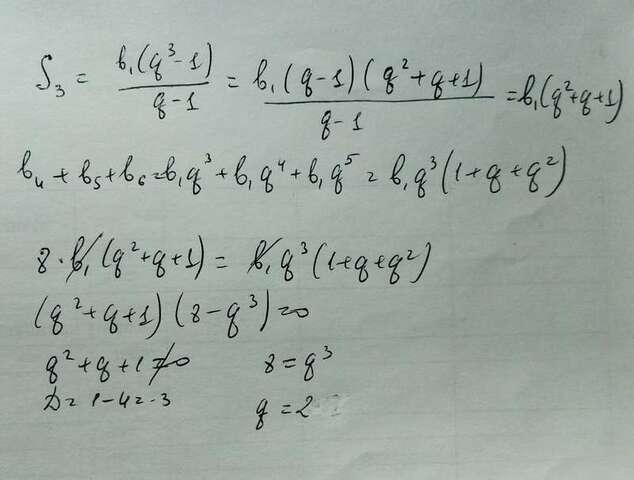 S₃ = b₁(q³-1)/(q-1) = b₁(q-1)(q²+q+1)/(q-1) = b₁(q²+q+1)
b₄ + b₅ + b₆ = b₁q³ + b₁q⁴ + b₁q⁵ = b₁q³(1+q+q²)
8 · b₁(q²+q+1) = b₁q³(1+q+q²)
(q²+q+1)(8-q³)=0
q²+q+1≠0 8=q³
D=1-4=-3 q=2